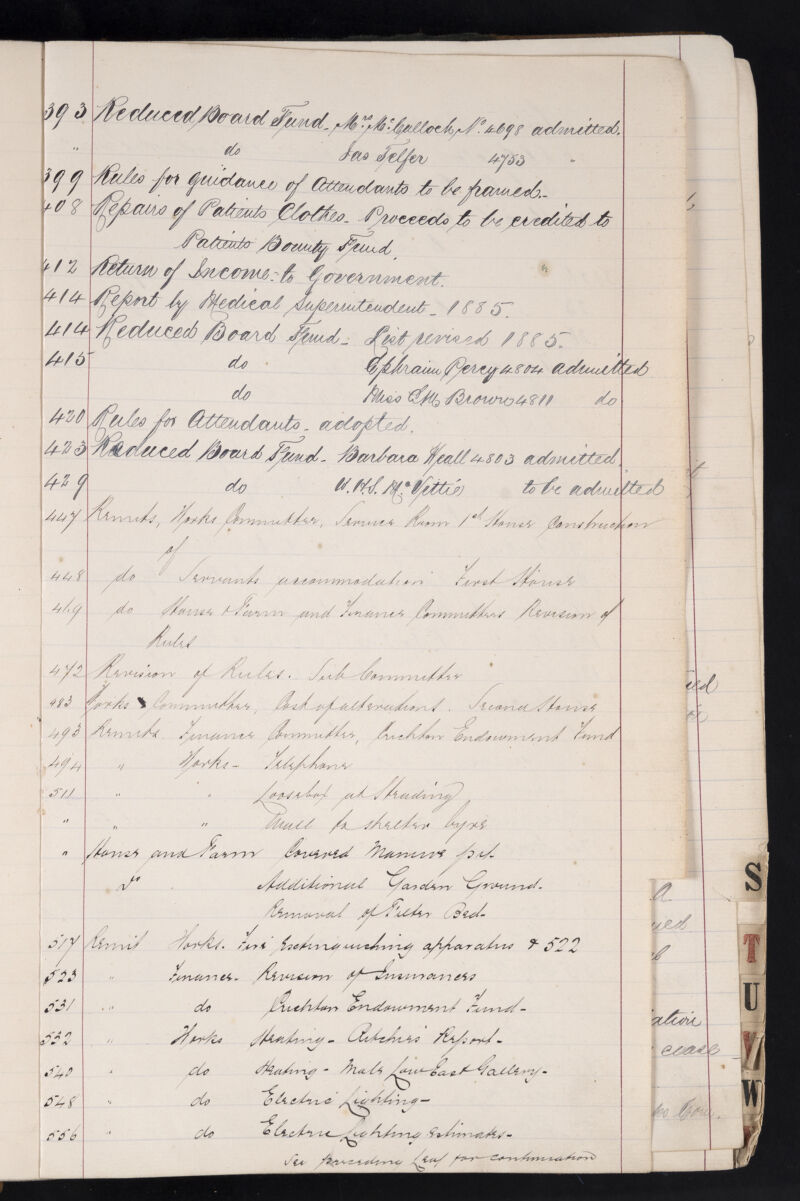 393 Reduced Board Fund - Mrs McCulloch No 4698 admitted.
" do Jas Telfer 4753 "
399 Rules for guidance of Attendants to be framed -
408 Repairs of Patients Clothes - Proceeds to be credited to
Patients Bounty Fund.
412 Return of Income - to Government.
414 Report by Medical Superintendent - 1885.
414 Reduced Board Fund - List revised 1885.
415 do Ephraim Percy 4804 admitted
do Miss C.M. Brown 4811 do
420 Rules for Attendants - adopted.
423 Reduced Board Fund - Barbara Heall 4803 admitted.
429 do W.H.S. McVettie to be admitted
447 Remits, Works Committee, Service Room 1st House Construction
of
448 do Servants accommodation First House
469 do House & Farm and Finance Committees Revision of
Rules
472 Revision of Rules. Sub Committee
483 Works Committee, Cost of alterations. Second House
493 Remits Finance Committee, Crichton Endowment Fund
494 " Works - Telephone
511 " " Loosebox at Steading
" " " Wall to shelter byre
" House and Farm Covered Manure pit -
Do Additional Garden Ground -
Removal of Filter Bed -
517 Remit Works. Fire Extinguishing apparatus & 522
523 " Finance - Revision of Insurances
531 " do Crichton Endowment Fund -
532 " Works Heating - Ritchies Report -
540 " do Heating - Male Low East Gallery -
548 " do Electric Lighting -
556 " do Electric Lighting Estimates -
See preceding Leaf for continuation
ation
cease
S
T
U
V
W